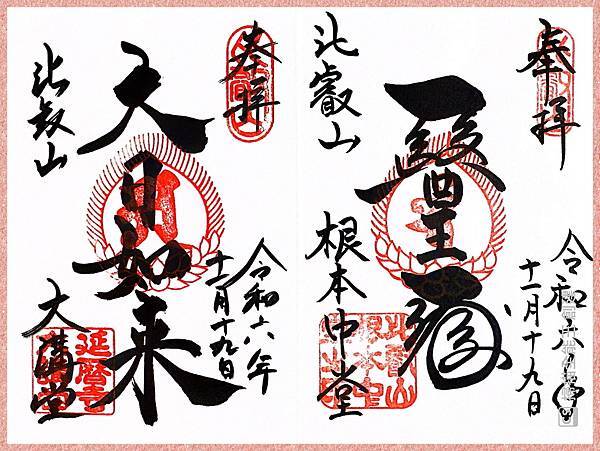 奉拝
令和六年
十一月十九日
醫王殿
比叡山
根本中堂
奉拝
令和六年
十一月十九日
大日如来
比叡山
大講堂
延暦寺